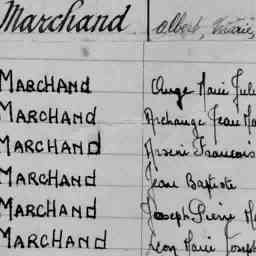 Marchand Albert, Victoire,
MARCHAND Ange Marie Juli
MARCHAND Archange Jean Ma
MARCHAND Arsène Francois
MARCHAND Jean Baptiste
MARCHAND Joseph Pierre Ma
MARCHAND Léon Marie Joseph